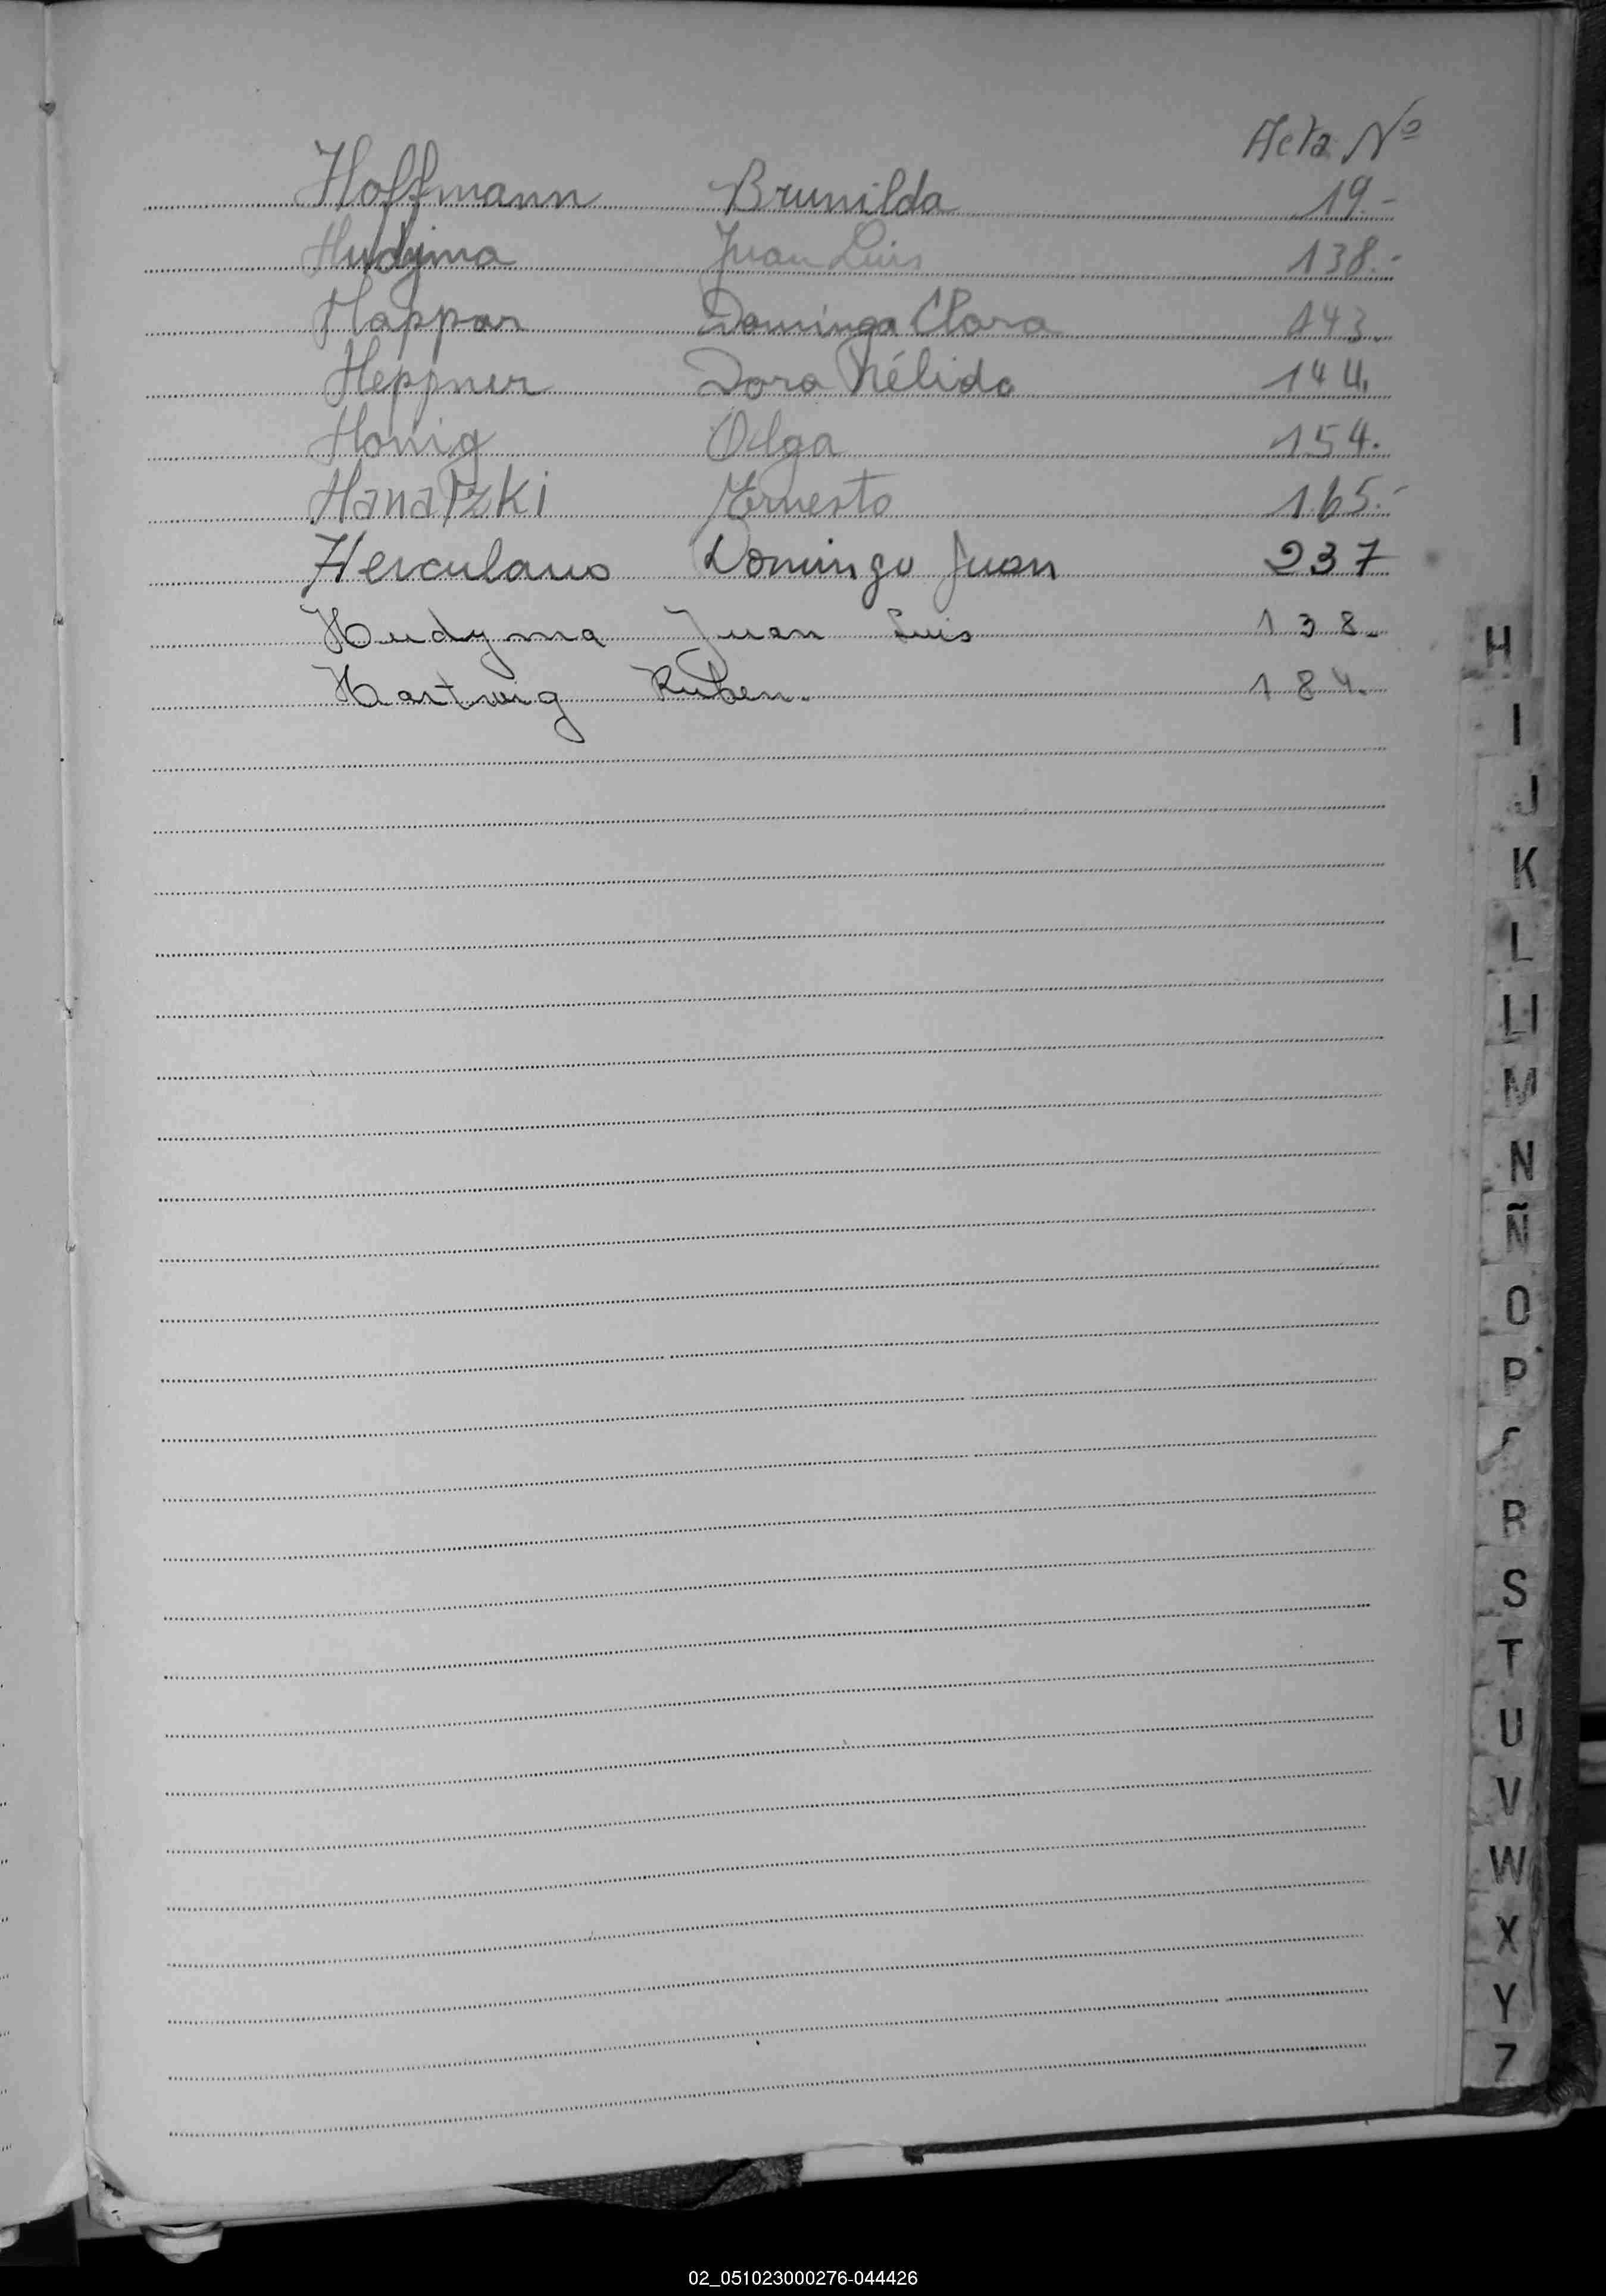 Acta Nº
Hoffmann Brunilda 19.-
Hudyma Juan Luis 138.-
Happar Dominga Clara 143.
Heppner Dora Nélida 144.
Honig Olga 154.
Hanatzki Ernesto 165.-
Herculano Domingo Juan 237
Hudyma Juan Luis 138.-
Hartwig Ruben. 184.
H
I
J
K
L
Ll
M
N
Ñ
O
P
R
S
T
U
V
W
X
Y
Z
02_051023000276-044426